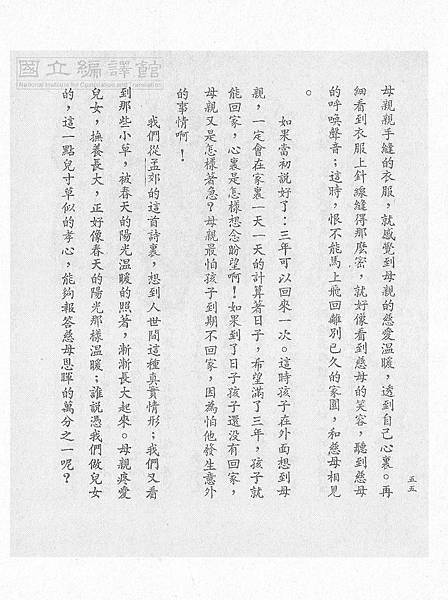 國立編譯館
National Institute for Compilation and Translation
母親親手縫的衣服，就感覺到母親的慈愛溫暖，透到自己心裏。再
細看到衣服上針線縫得那麼密，就好像看到慈母的笑容，聽到慈母
的呼喚聲音；這時，恨不能馬上飛回離別已久的家園，和慈母相見
。
如果當初說好了：三年可以回來一次。這時孩子在外面想到母
親，一定會在家裏一天一天的計算著日子，希望滿了三年，孩子就
能回家，心裏是怎樣想念盼望啊！如果到了日子孩子還沒有回家，
母親又是怎樣著急？母親最怕孩子到期不回家，因為怕他發生意外
的事情啊！
我們從孟郊的這首詩裏，想到人世間這種真實情形；我們又看
到那些小草，被春天的陽光溫暖的照著，漸漸長大起來。母親疼愛
兒女，撫養長大，正好像春天的陽光那樣溫暖；誰說憑我們做兒女
的，這一點兒寸草似的孝心，能夠報答慈母恩暉的萬分之一呢？
五五